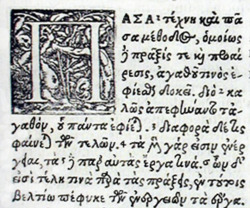 ΠΑΣΑ τέχνη καὶ πᾶ
σα μέθοδος, ὁμοίως
ἡ πρᾶξίς τε καὶ προαί
ρεσις, ἀγαθοῦ τινὸς
ἐφίεσθαι δοκεῖ. διὸ κα
λῶς ἀπεφήναντο τἀ
γαθὸν, οὗ πάντα ἐφίε). διαφορὰ δέ τις
φαίνε) τῶν τελῶν. τὰ μ γάρ εἰσιν ἐνέρ
γειαι, τὰ παρ' αὐτὰς ἔργα τινά. ὧν δ'
εἰσὶ τέλη τινὰ παρὰ τὰς πράξεις, ἐν τούτοις
βελτίω πέφυκε τῶν ἐνεργειῶν τὰ ἔργα.